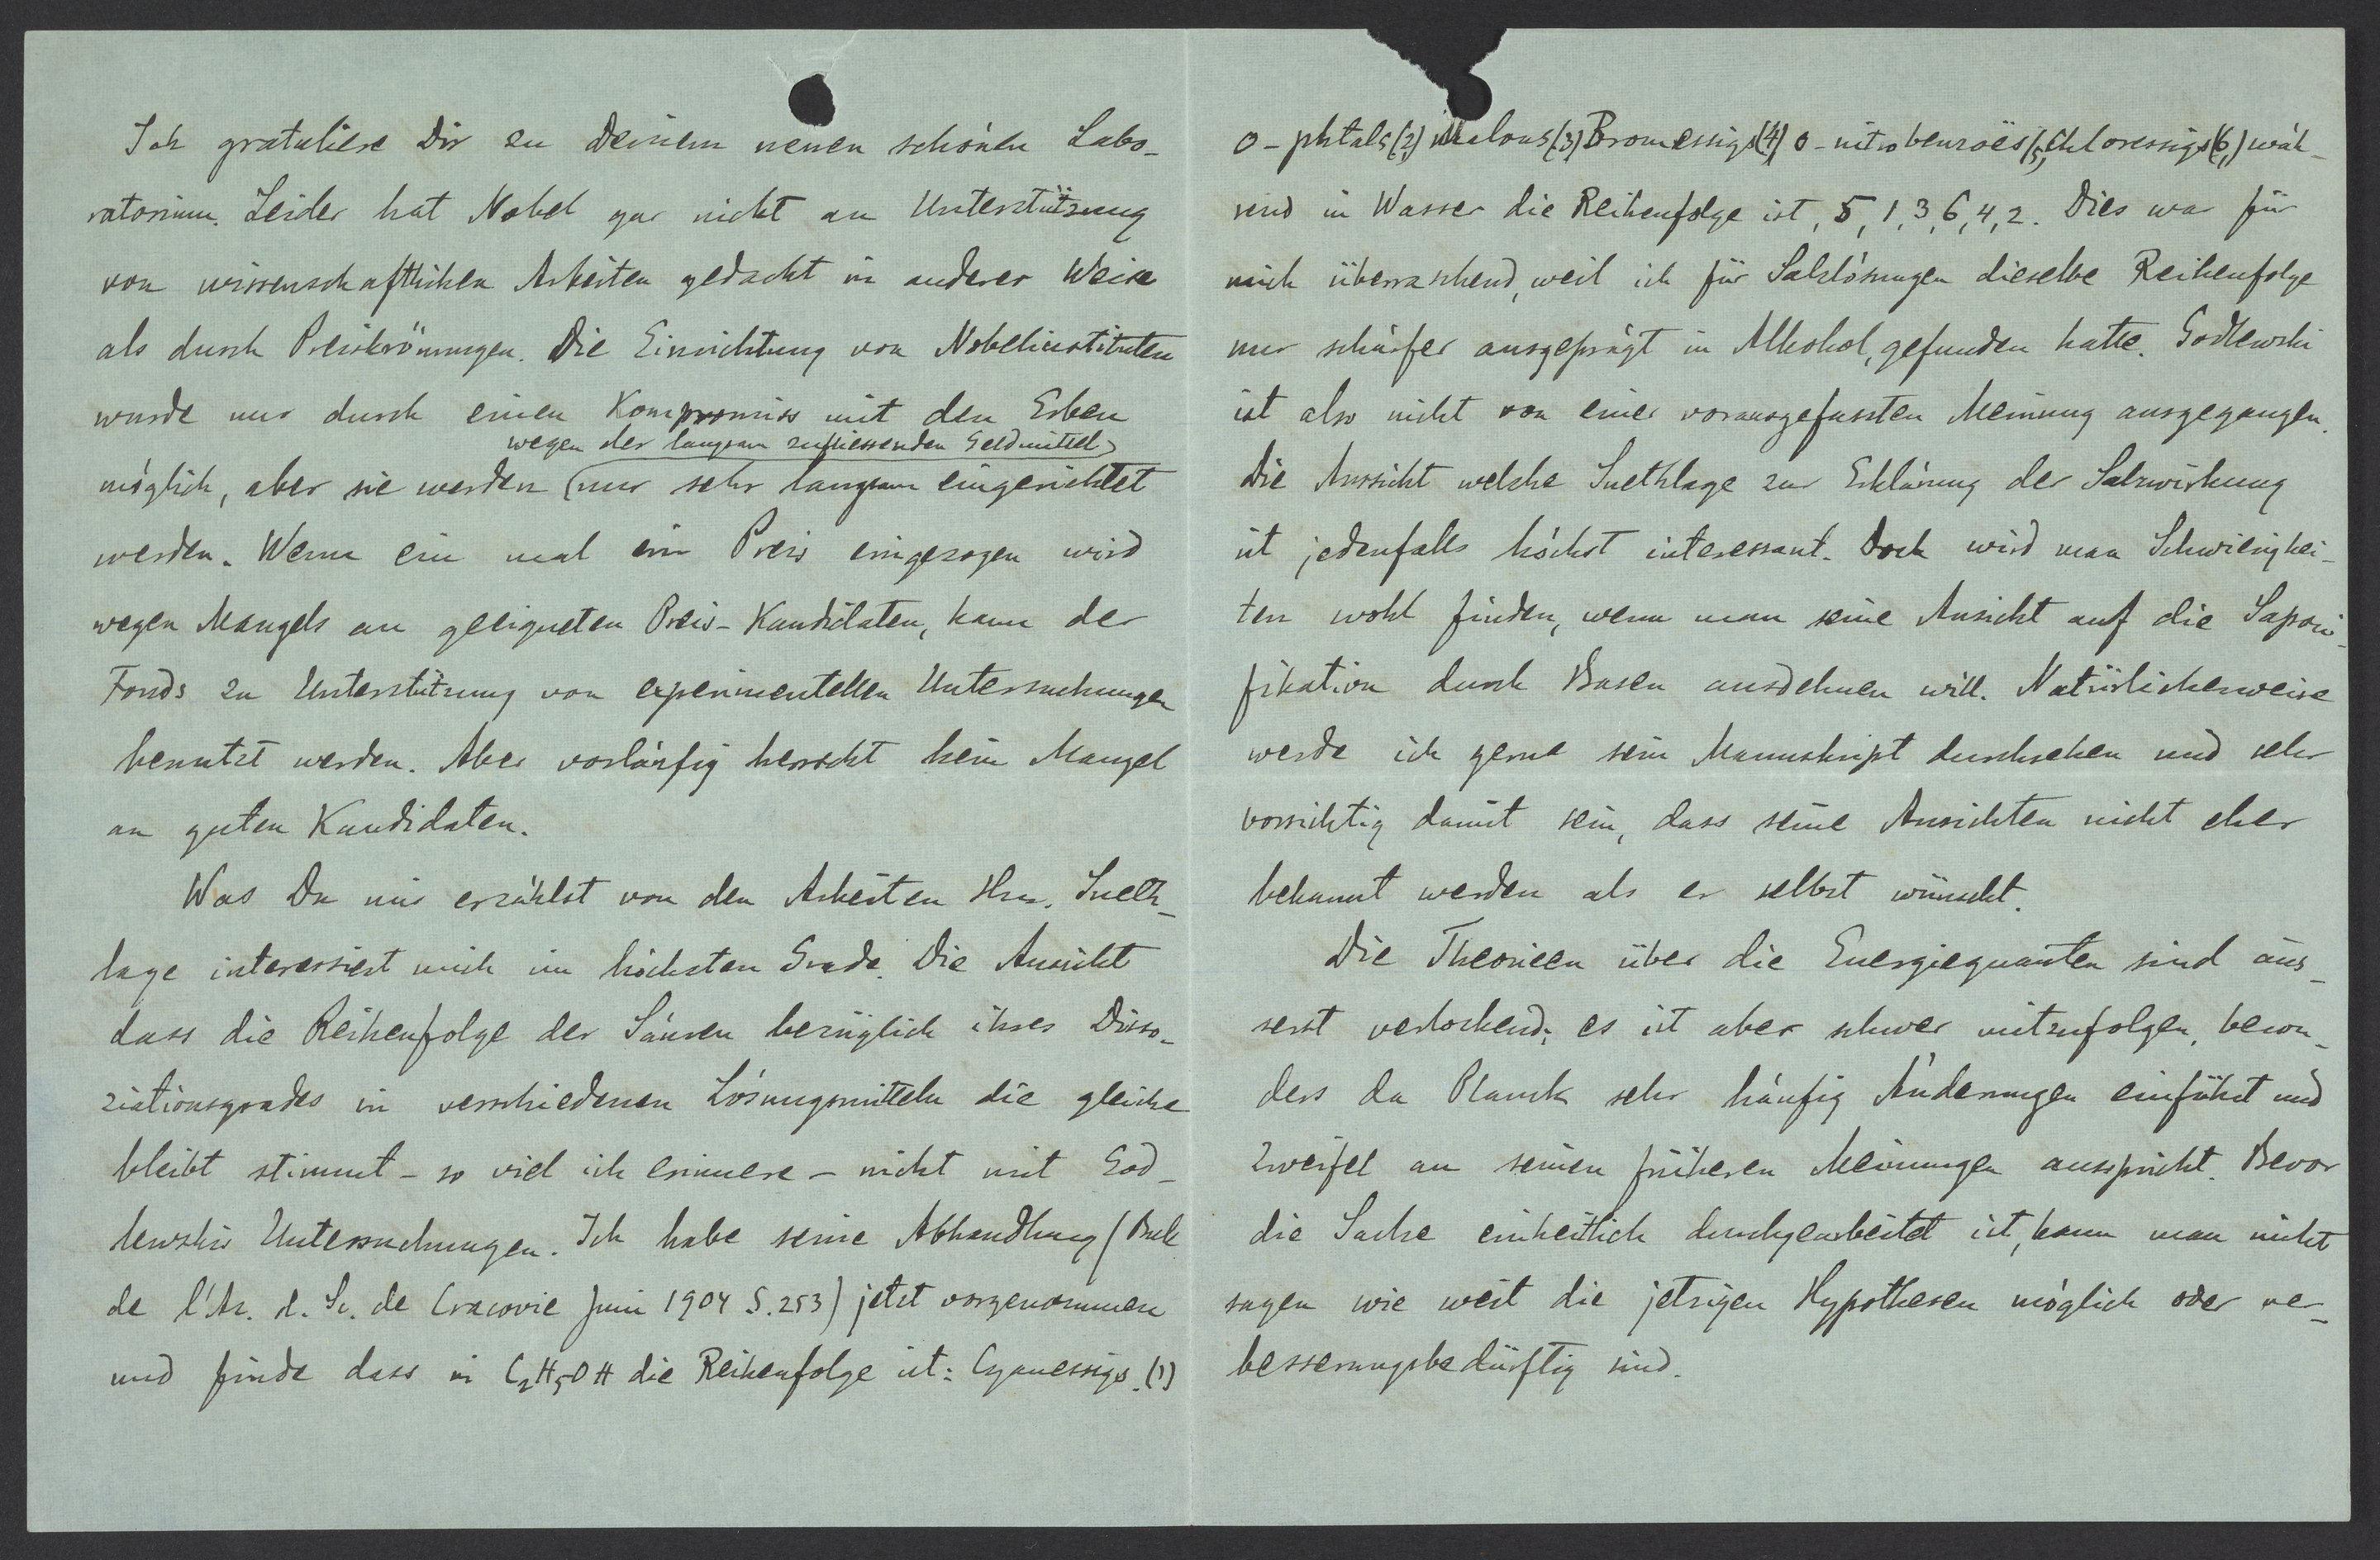 Ich gratuliere Dir zu Deinem neuen schönen Labo-
ratorium. Leider hat Nobel gar nicht an Unterstützung
von wissenschaftlichen Arbeiten gedacht in anderer Weise
als durch Preiskrönungen. Die Einrichtung von Nobelinstituten
wurde nur durch einen Kompromiss mit den Erben
wegen der langsam zufliessenden Geldmittel
möglich, aber sie werden nur sehr langsam eingerichtet
werden. Wenn ein mal ein Preis eingezogen wird
wegen Mangels an geeigneten Preis-Kandidaten, kann der
Fonds zu Unterstützung von experimentellen Untersuchungen
benutzt werden. Aber vorläufig herrscht kein Mangel
an guten Kandidaten.
Was Du mir erzählst von den Arbeiten Hrn. Sneth-
lage interessiert mich im höchsten Grade. Die Ansicht
dass die Reihenfolge der Säuren bezüglich ihres Disso-
ziationsgrades in verschiedenen Lösungsmitteln die gleiche
bleibt stimmt - so viel ich erinnere - nicht mit God-
lewskis Untersuchungen. Ich habe seine Abhandlung (Bull
de l'Ac. d. Sc. de Cracovie Juni 1904 S. 253) jetzt vorgenommen
und finde dass in C2H5OH die Reihenfolge ist: Cyanessigs. (1)
o-phtals (2,) Malons (3,) Bromessigs (4,) o-nitrobenzoës (5,) Chloressigs (6,) wäh-
rend in Wasser die Reihenfolge ist, 5, 1, 3, 6, 4, 2. Dies war für
mich überraschend, weil ich für Salzlösungen dieselbe Reihenfolge
nur schärfer ausgeprägt in Alkohol, gefunden hatte. Godlewski
ist also nicht von einer vorausgefassten Meinung ausgegangen.
Die Ansicht welche Snethlage zur Erklärung der Salzwirkung
ist jedenfalls höchst interessant. Doch wird man Schwierigkei-
ten wohl finden, wenn man seine Ansicht auf die Saponi-
fikation durch Basen ausdehnen will. Natürlicherweise
werde ich gerne sein Manuskript durchsehen und sehr
vorsichtig damit sein, dass seine Ansichten nicht eher
bekannt werden als er selbst wünscht.
Die Theorieen über die Energiequanten sind äus-
serst verlockend; es ist aber schwer mitzufolgen, beson-
ders da Planck sehr häufig Änderungen einführt und
Zweifel an seinen früheren Meinungen ausspricht. Bevor
die Sache einheitlich durchgearbeitet ist, kann man nicht
sagen wie weit die jetzigen Hypothesen möglich oder ver-
besserungsbedürftig sind.